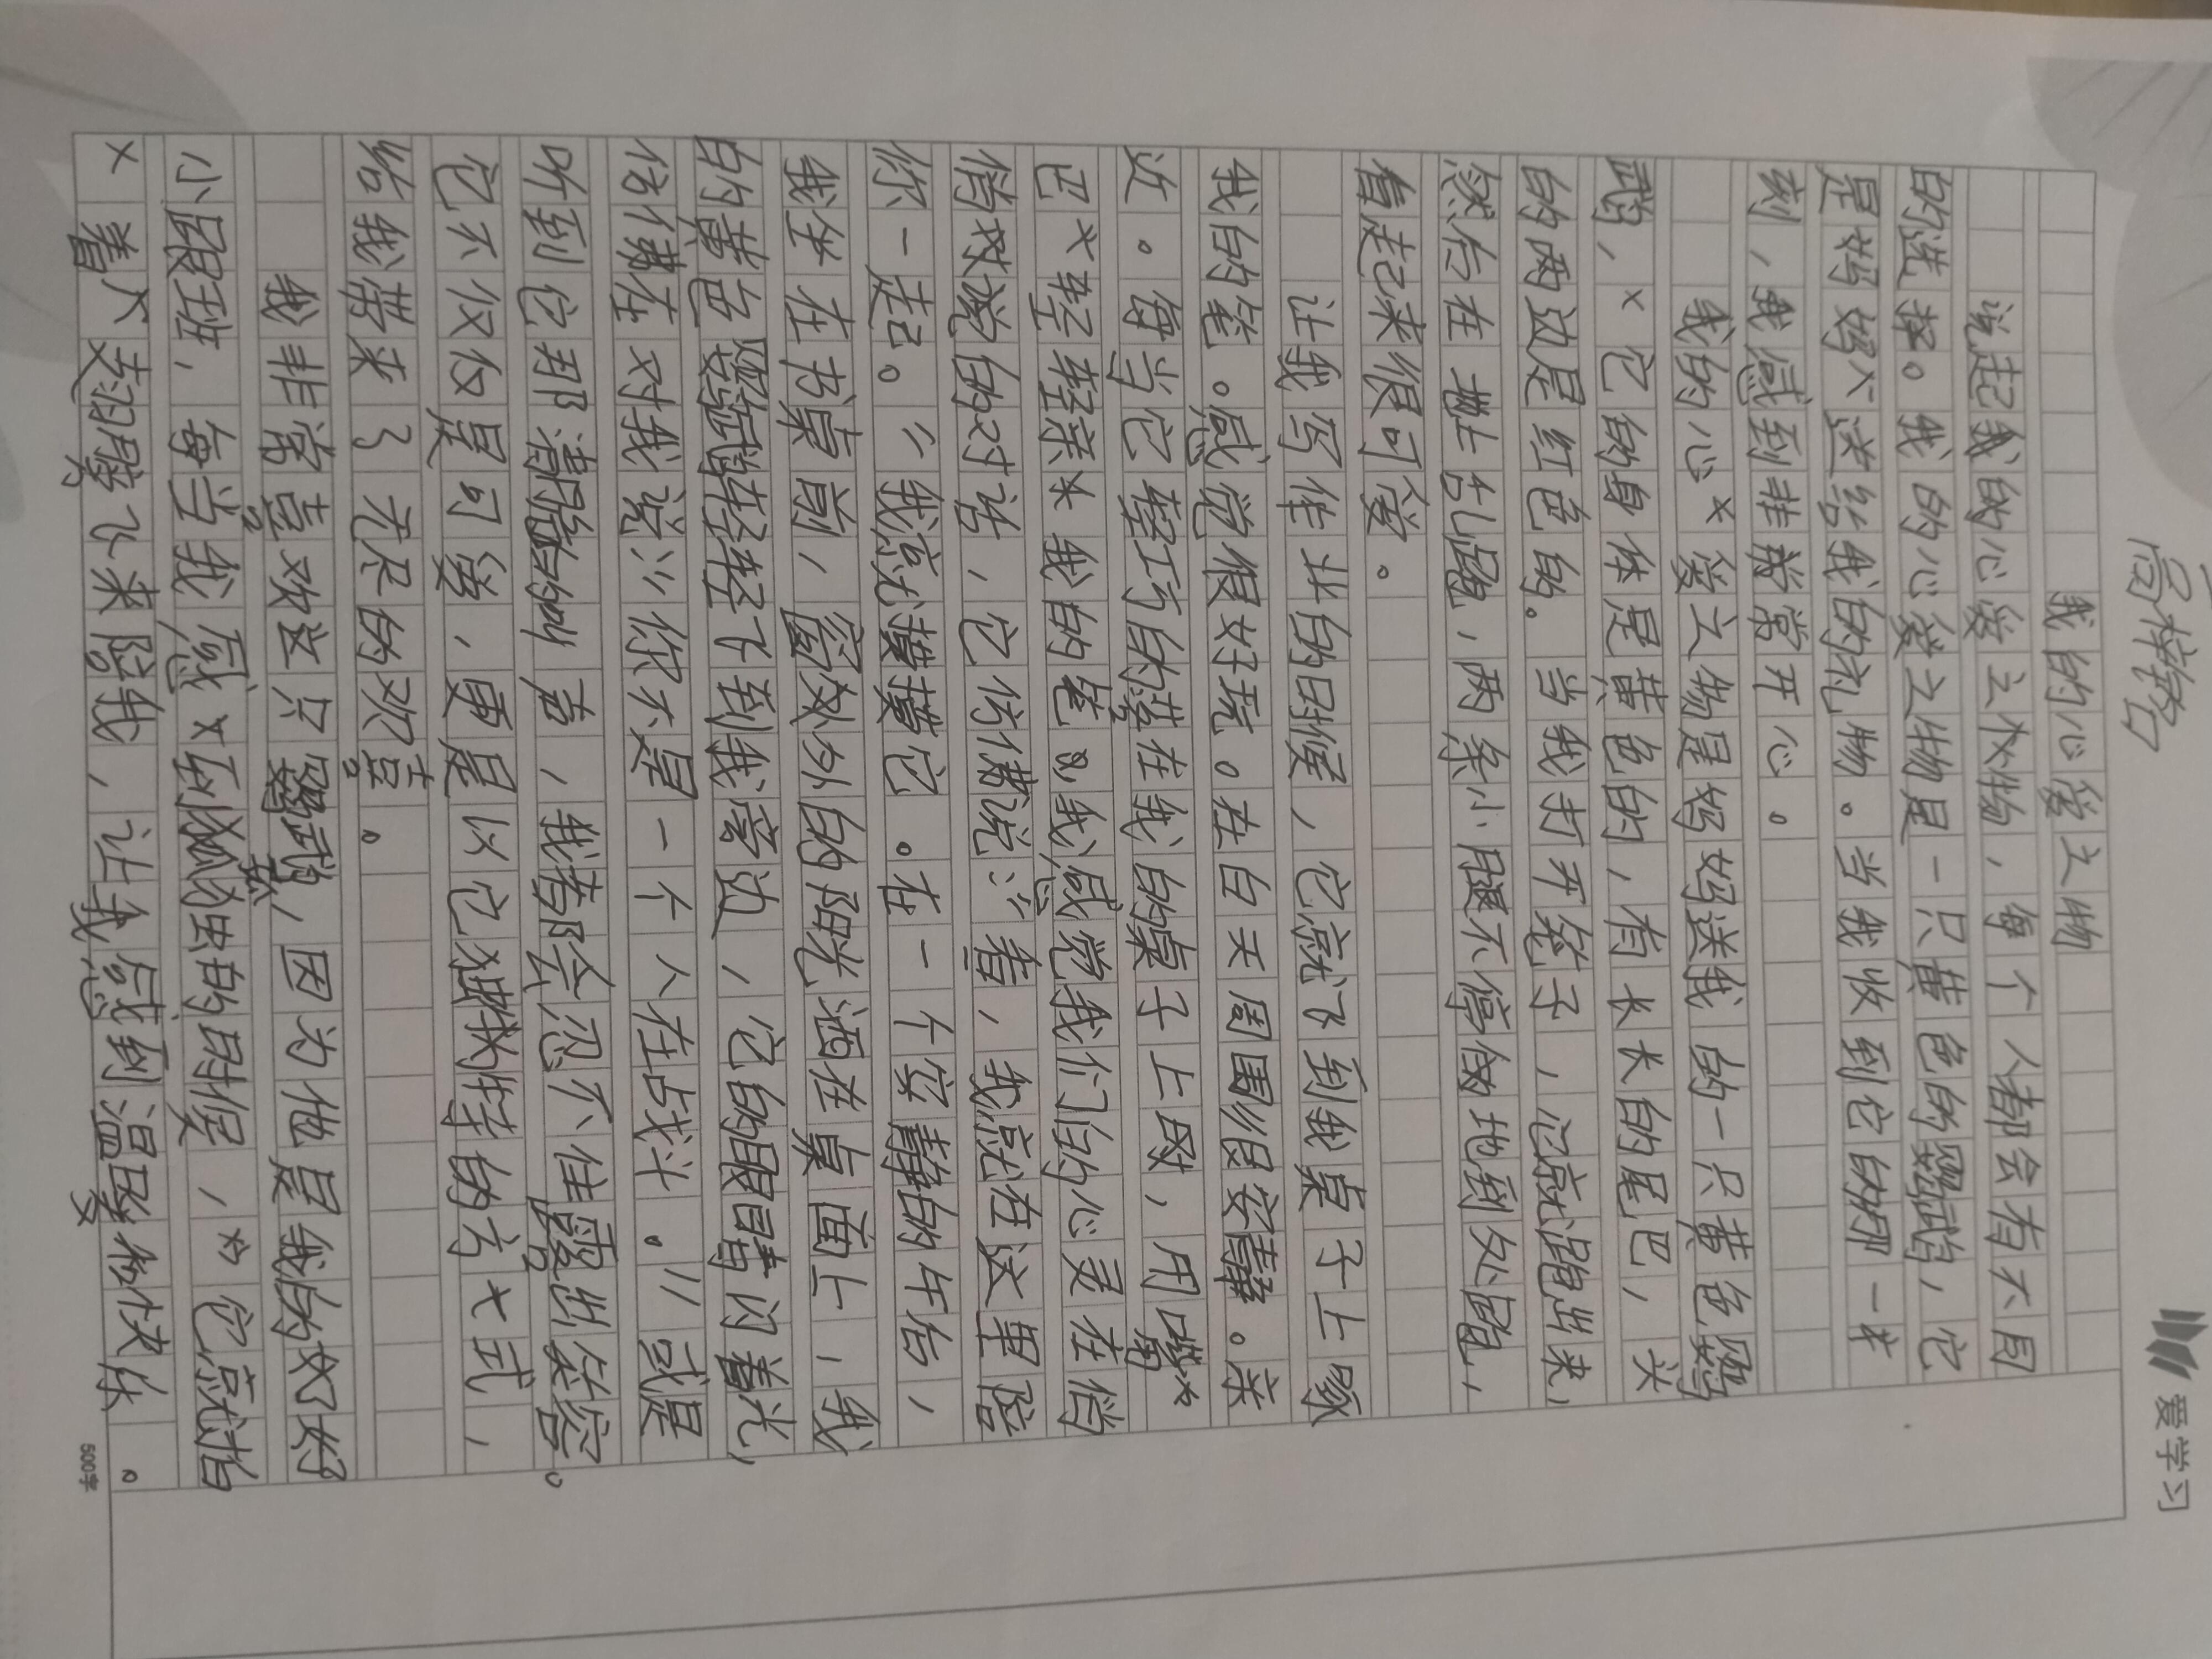 爱学习
我的心爱之物
说起我的心爱之物，每个人都会有不同
的选择。我的心爱之物是一只黄色的鹦鹉，它
是妈妈送给我的礼物。当我收到它的那一
刻，我感到非常开心。
我的心爱之物是妈妈送我的一只黄色鹦
鹉，它的身体是黄色的，有长长的尾巴，头
的两边是红色的。当我打开笼子，它就跑出来，
然后在地上乱跑，两条小腿不停的地到处跑，
看起来很可爱。
让我写作业的时候，它就飞到我桌子上啄
我的笔。感觉很好玩。在白天周围很安静。亲
近。每当它轻巧的落在我的桌子上时，用嘴
巴轻轻亲我的笔，我感觉我们的心灵在悄
悄对说的对话，它仿佛说：“看，我就在这里陪
你一起。”我总就摸摸它。在一个安静的午后，
我坐在书桌前，窗外的阳光洒在桌面上，我
的黄色鹦鹉轻轻飞到我旁边，它的眼睛闪着光，
仿佛在对我说：“你不是一个人在战斗。”或是
听到它那清脆的叫声，我都会忍不住露出笑容。
它不仅仅是可爱，更是以它独特的方式，
给我带来了无尽的欢喜。
我非常喜欢这只鹦鹉，因为他是我的好
小跟班，每当我感到孤独的时候，它就拍
着翅膀飞来陪我，让我感到温暖和快乐。
500字